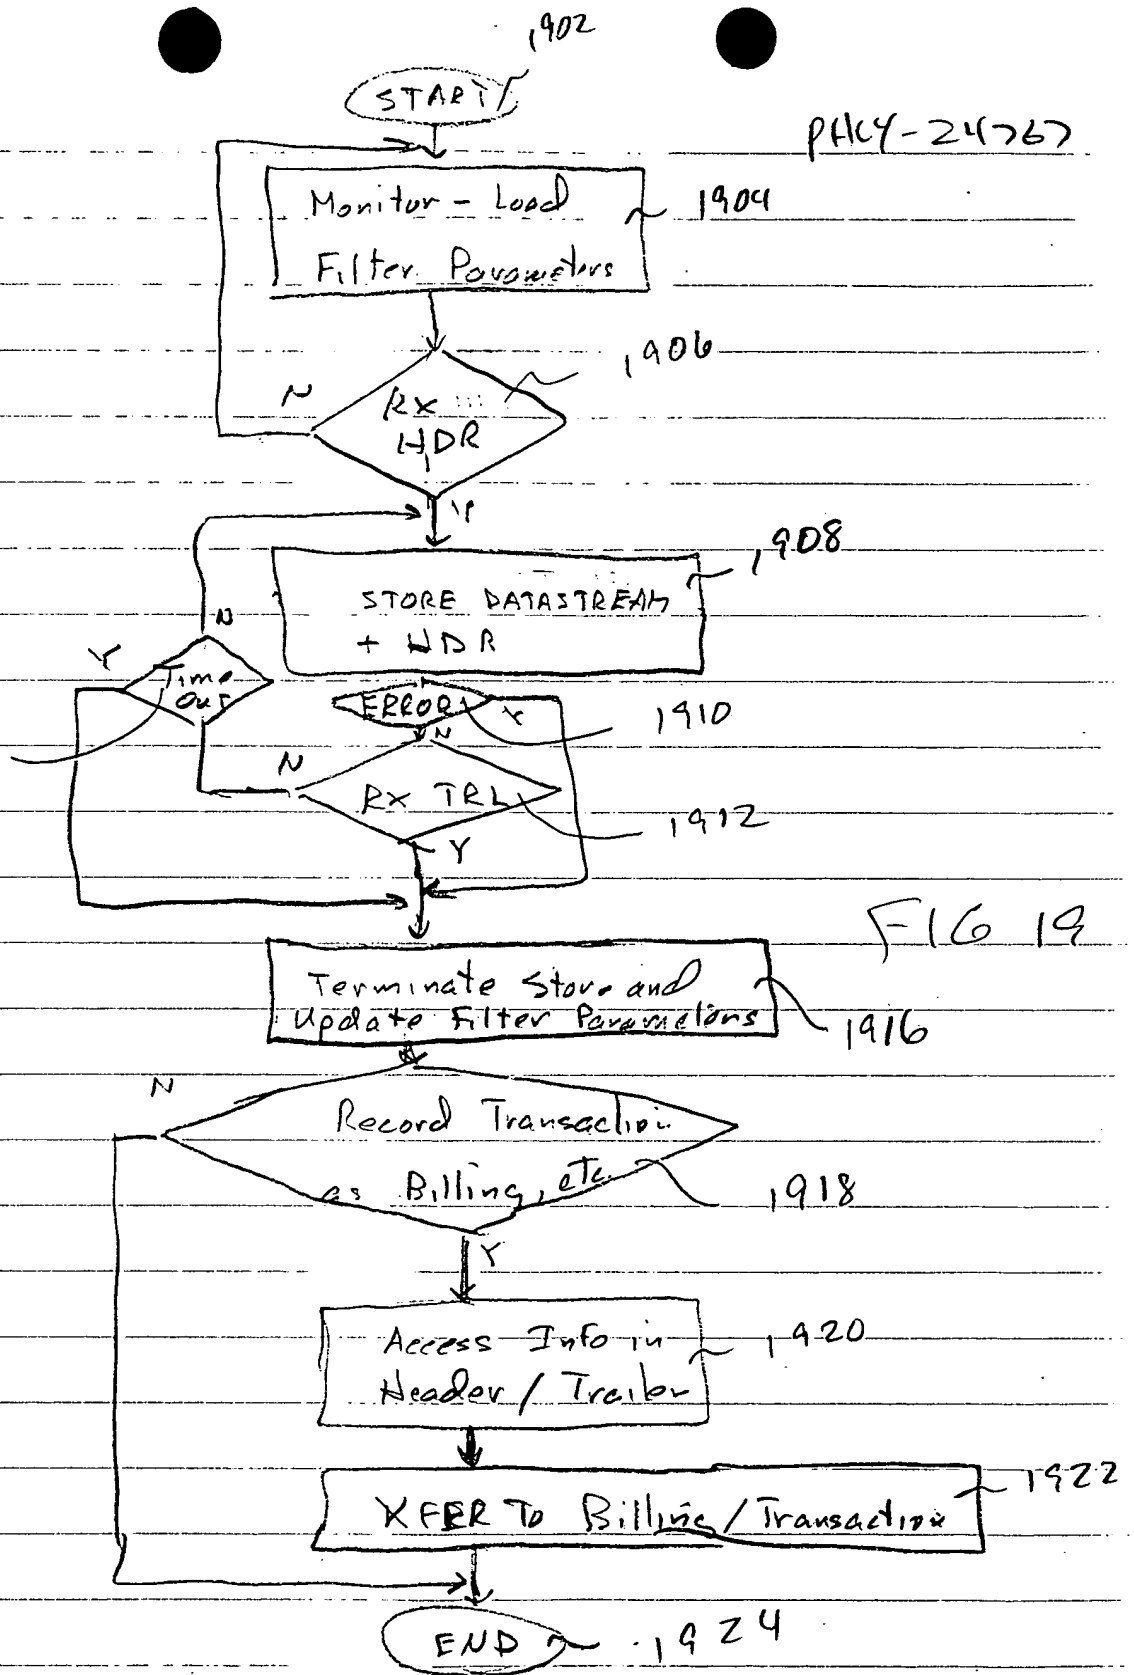 1902
START
PHLY-24767
Monitor - Load
Filter Parameters
1904
1906
N
RX
HDR
Y
1908
STORE DATASTREAM
+ HDR
N
Y
Time
Out
ERROR
Y
1910
N
N
RX TRL
1912
Y
FIG 19
Terminate Store and
Update Filter Parameters
1916
N
Record Transaction
as Billing, etc.
1918
Y
Access Info in
Header / Trailer
1920
XFER To Billing / Transaction
1922
END
1924